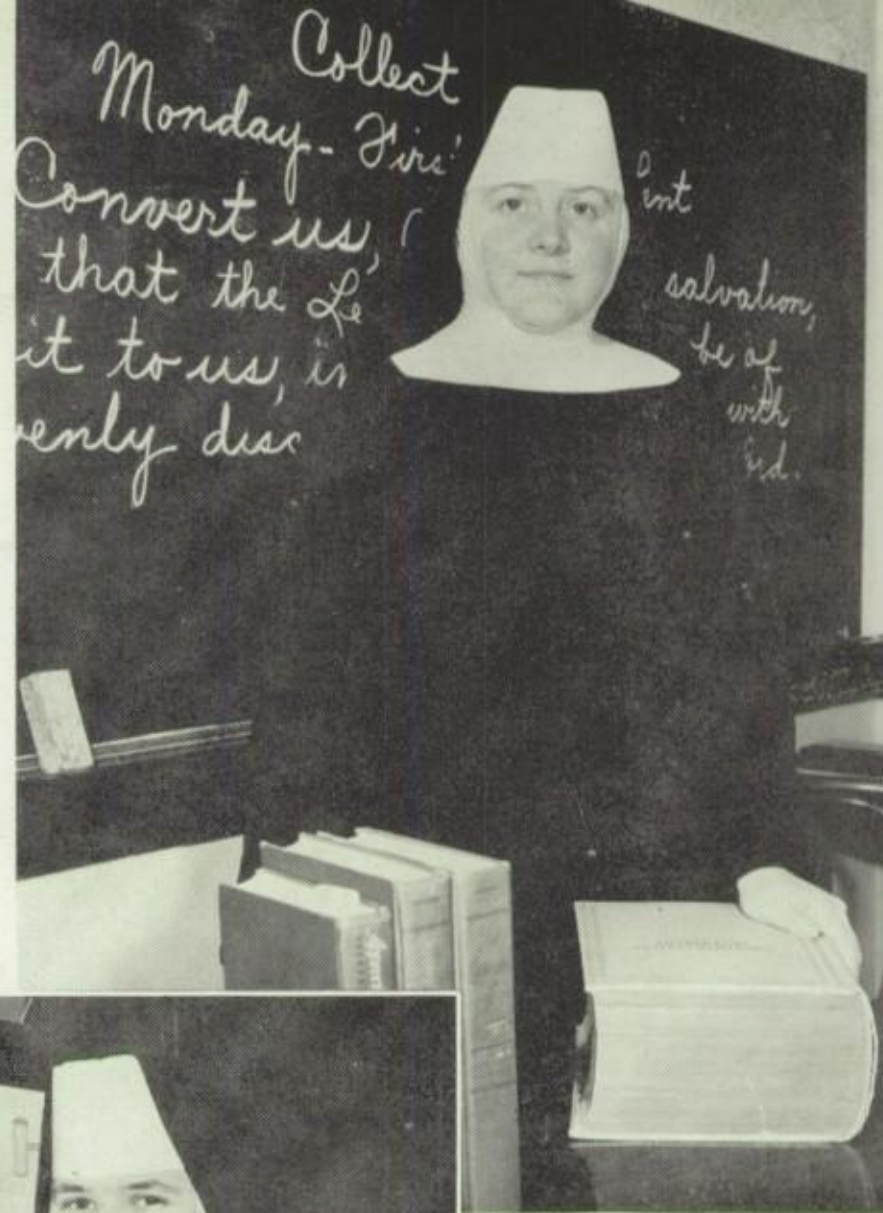 Collect
Monday - Firs
Convert us, salvation,
that the Le be of
it to us, in with
venly disc